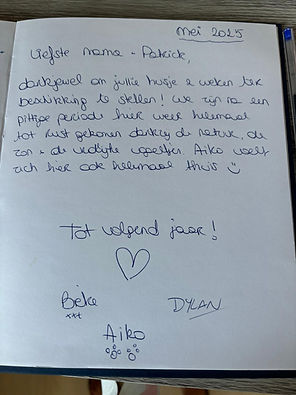 Mei 2025
Liefste mama + Patrick,
dankjewel om jullie huisje 2 weken ter
beschikking te stellen! We zijn na een
pittige periode hier weer helemaal
tot rust gekomen dankzij de natuur, de
zon & de vedyte vogeltjes. Aiko voelt
zich hier ook helemaal thuis ☺
Tot volgend jaar!
Beke
xxx
DYLAN
Aiko